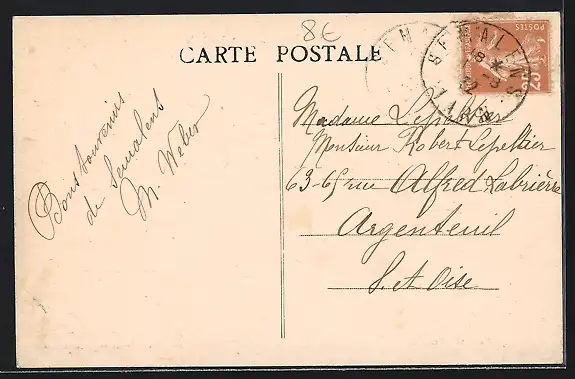 8€
CARTE POSTALE
SEMALENS
TARN
POSTES
25
Bons souvenirs
de Semalens
M. Weber
Madame Lepeltier
Monsieur Robert Lepeltier
63-65 rue Alfred Labrière
Argenteuil
S. et Oise